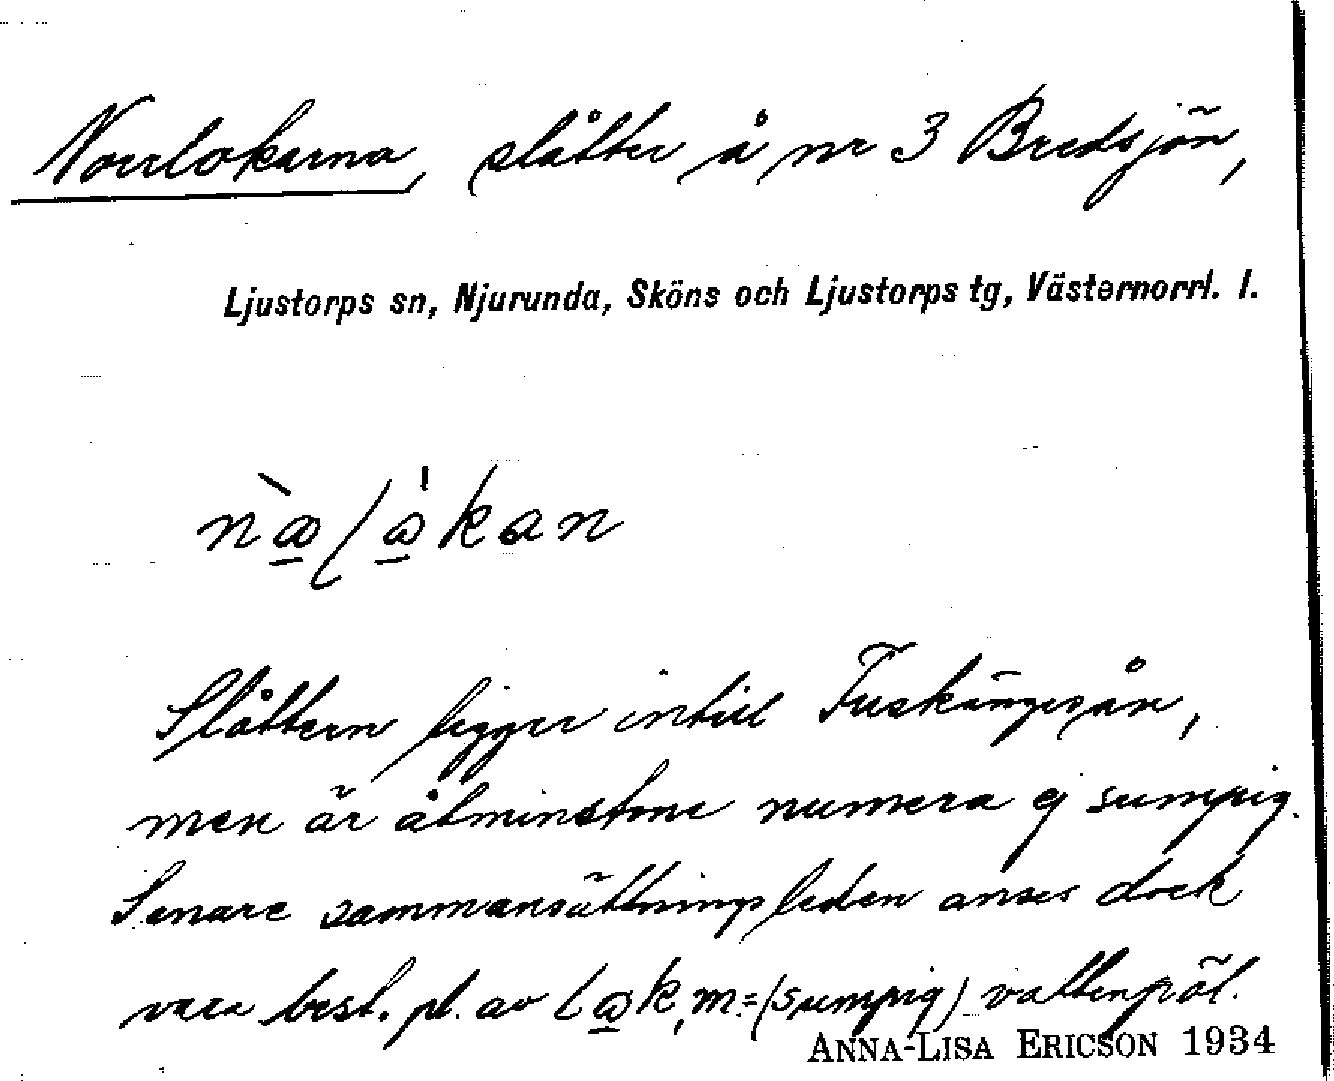 Norrlokarna, slåtter å nr 3 Bredsjön,
Ljustorps sn, Njurunda, Sköns och Ljustorps tg, Västernorrl. l.
Slåttern ligger intill Fuskingeån,
men är åtminstone numera ej sumpig.
Senare sammansättningsleden anses dock
vara best. pl. av m. = (sumpig) vattenpöl.
ANNA-LISA ERICSON 1934